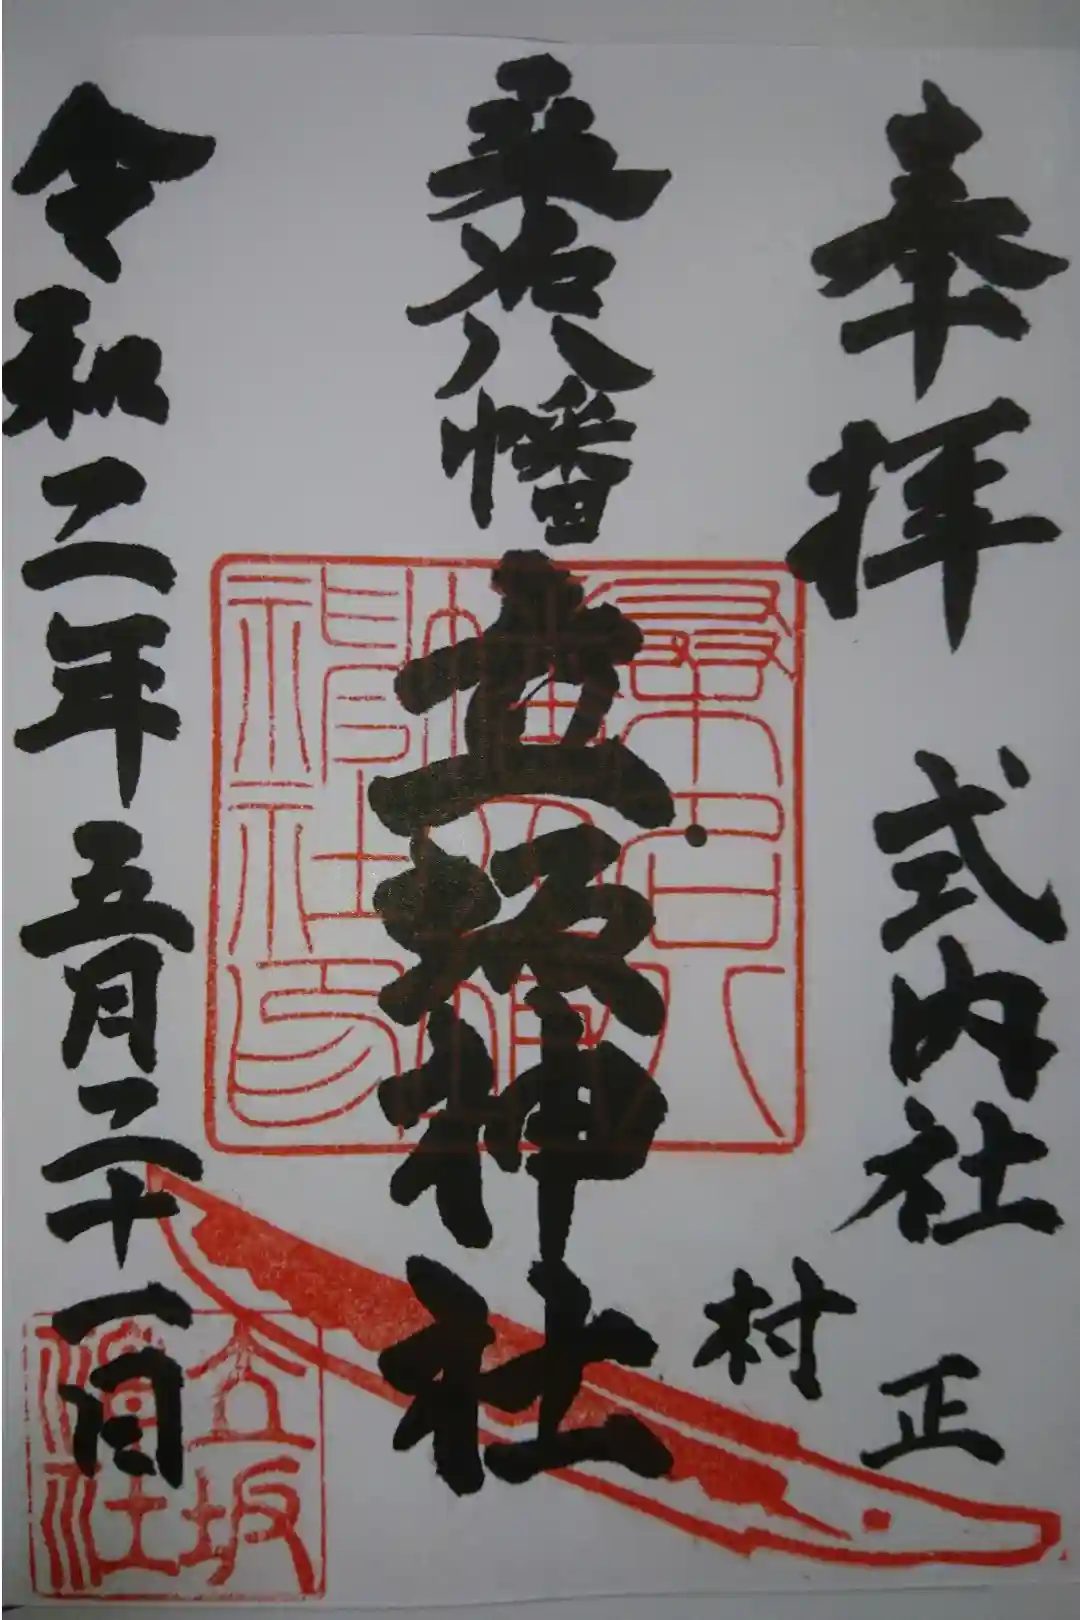 奉拝 式内社
村正
桒名八幡 立坂神社
令和二年五月二十一日
桑名八
幡立坂
神社印
立坂
神社